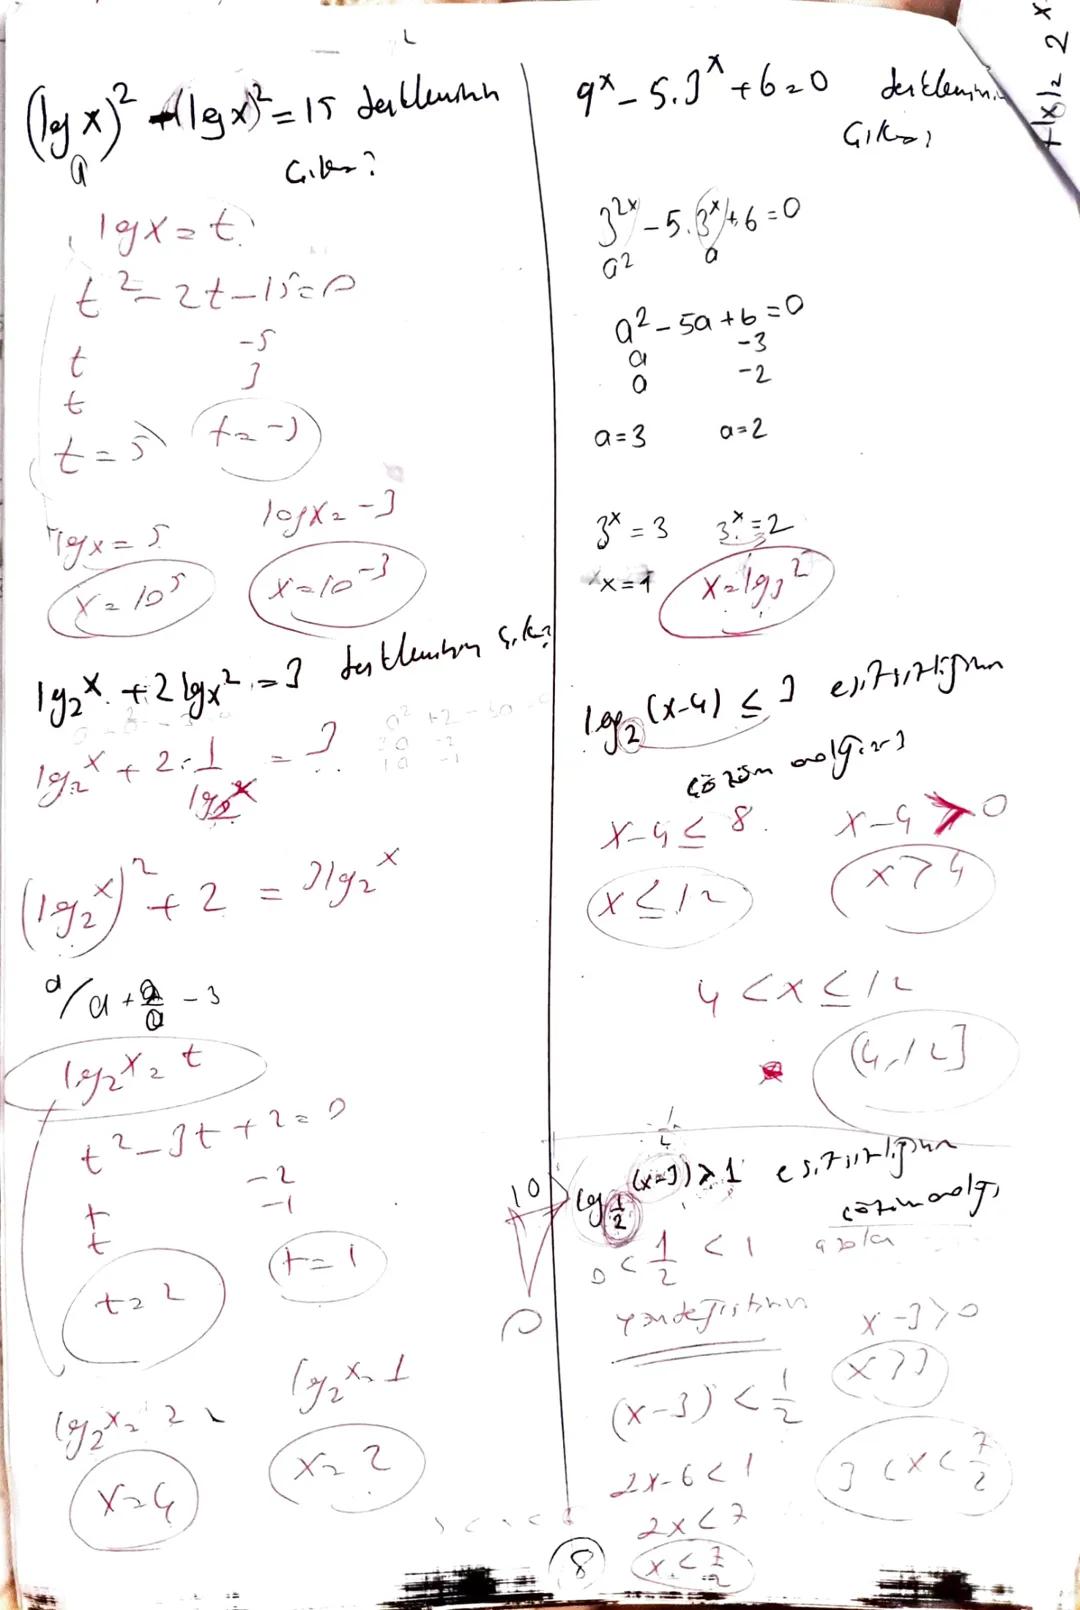 (log x)² - (lgx)² = 15 denkleminin
a
Ç.k=?
lgx = t
t² - 2t - 15 = 0
t -5
t 3
t = 5 t = -3
lgx = 5 logx = -3
x = 10⁵ x = 10⁻³
lg₂x + 2 lgx² = 3 denkleminin Ç.k=?
lg₂x + 2·1/lg₂x = 3
(lg₂x)² + 2 = 3lg₂x
a/a + 2/a - 3
lg₂x = t
t² - 3t + 2 = 0
t -2
t -1
t = 2 t = 1
lg₂x = 2 lg₂x = 1
x = 4 x = 2
9ˣ - 5.3ˣ + 6 = 0 denklemin
Ç.k=?
3²ˣ - 5.3ˣ + 6 = 0
a² a
a² - 5a + 6 = 0
a -3
a -2
a = 3 a = 2
3ˣ = 3 3ˣ = 2
x = 1 x = lg₃2
log₂(x-4) ≤ 3 eşitsizliğinin
çözüm aralığı=?
x-4 ≤ 8 x-4 > 0
x ≤ 12 x > 4
4 < x ≤ 12
(4,12]
10
log½(x-3) > 1 eşitsizliğinin
çözüm aralığı
0 < 1/2 < 1
yön değiştirir
x-3 > 0
(x-3) < 1/2 x > 3
2x-6 < 1 3 < x < 7/2
2x < 7
x < 7/2
8